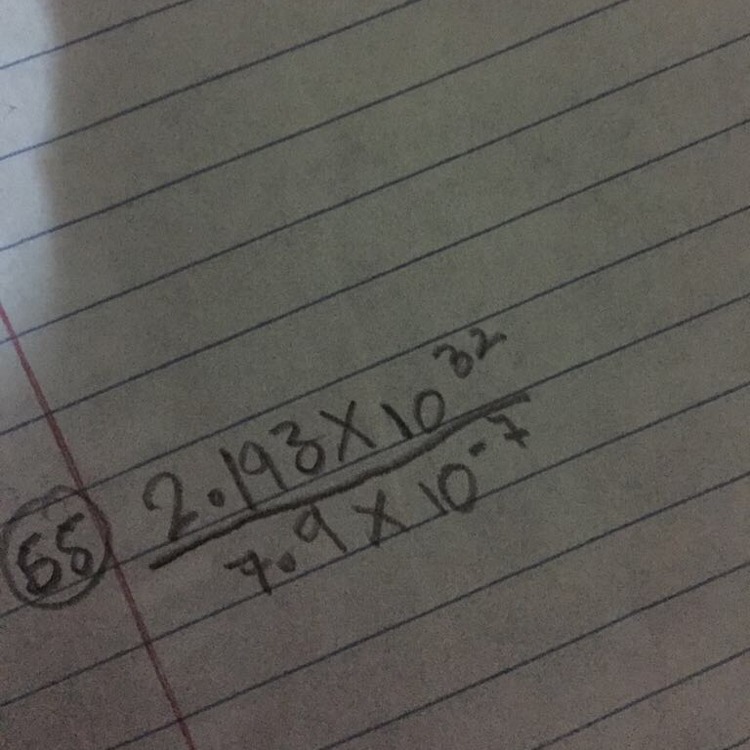 55
2.193 X 10^32
7.9 X 10^-7